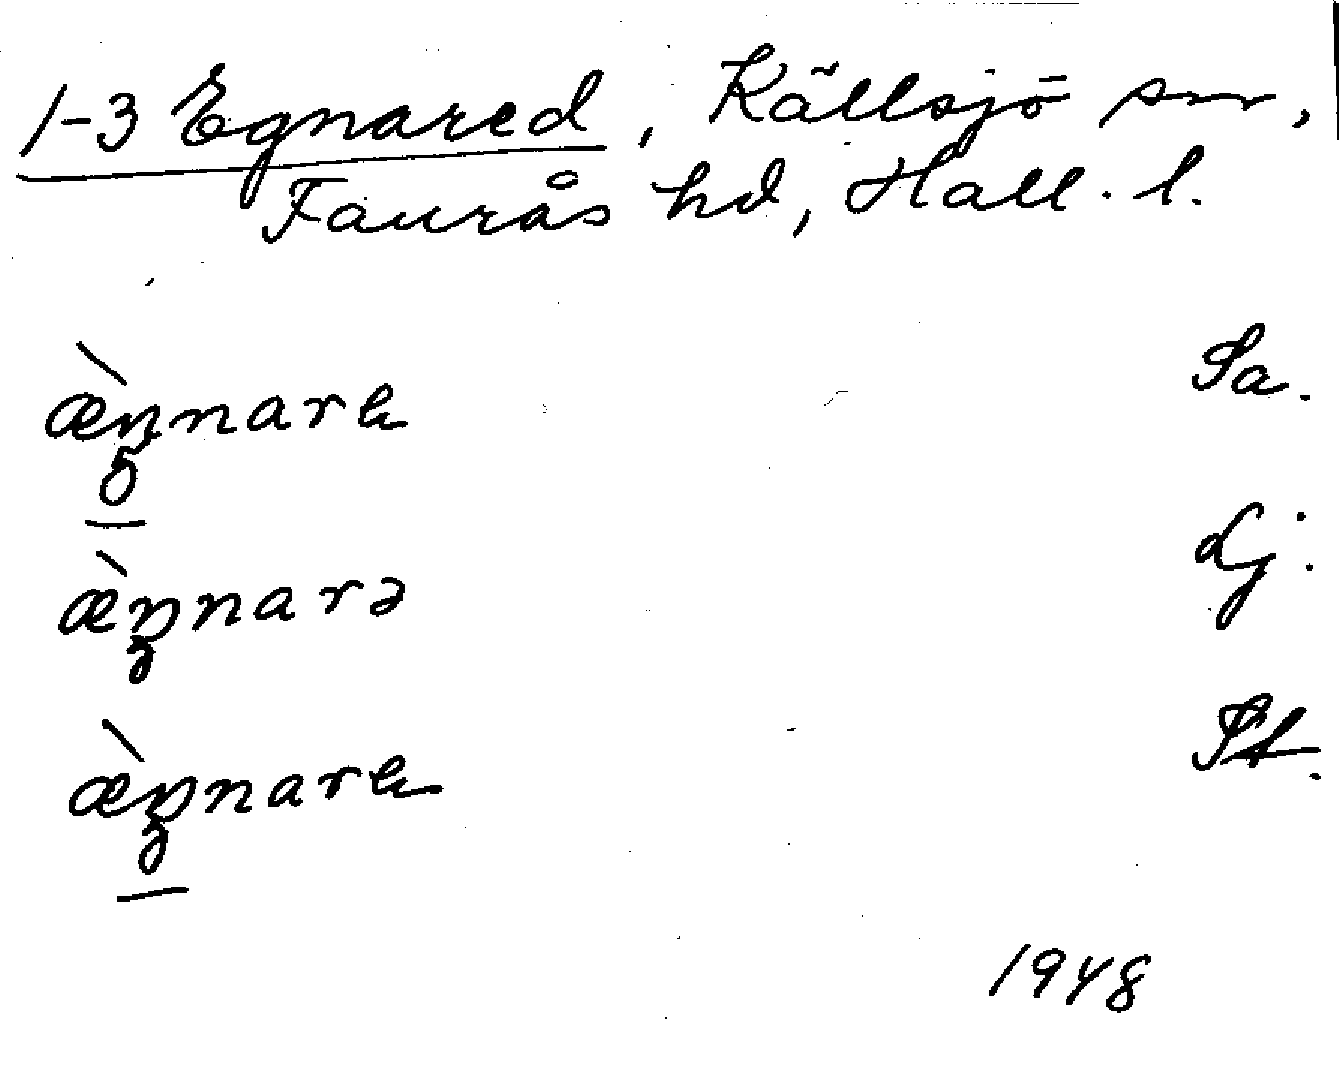 1-3 Egnared, Källsjö sn,
Faurås hd, Hall. l.
æ̀ŋnarɛ Sa.
æ̀ŋnarə Lj.
æ̀ŋnarɛ St.
1948